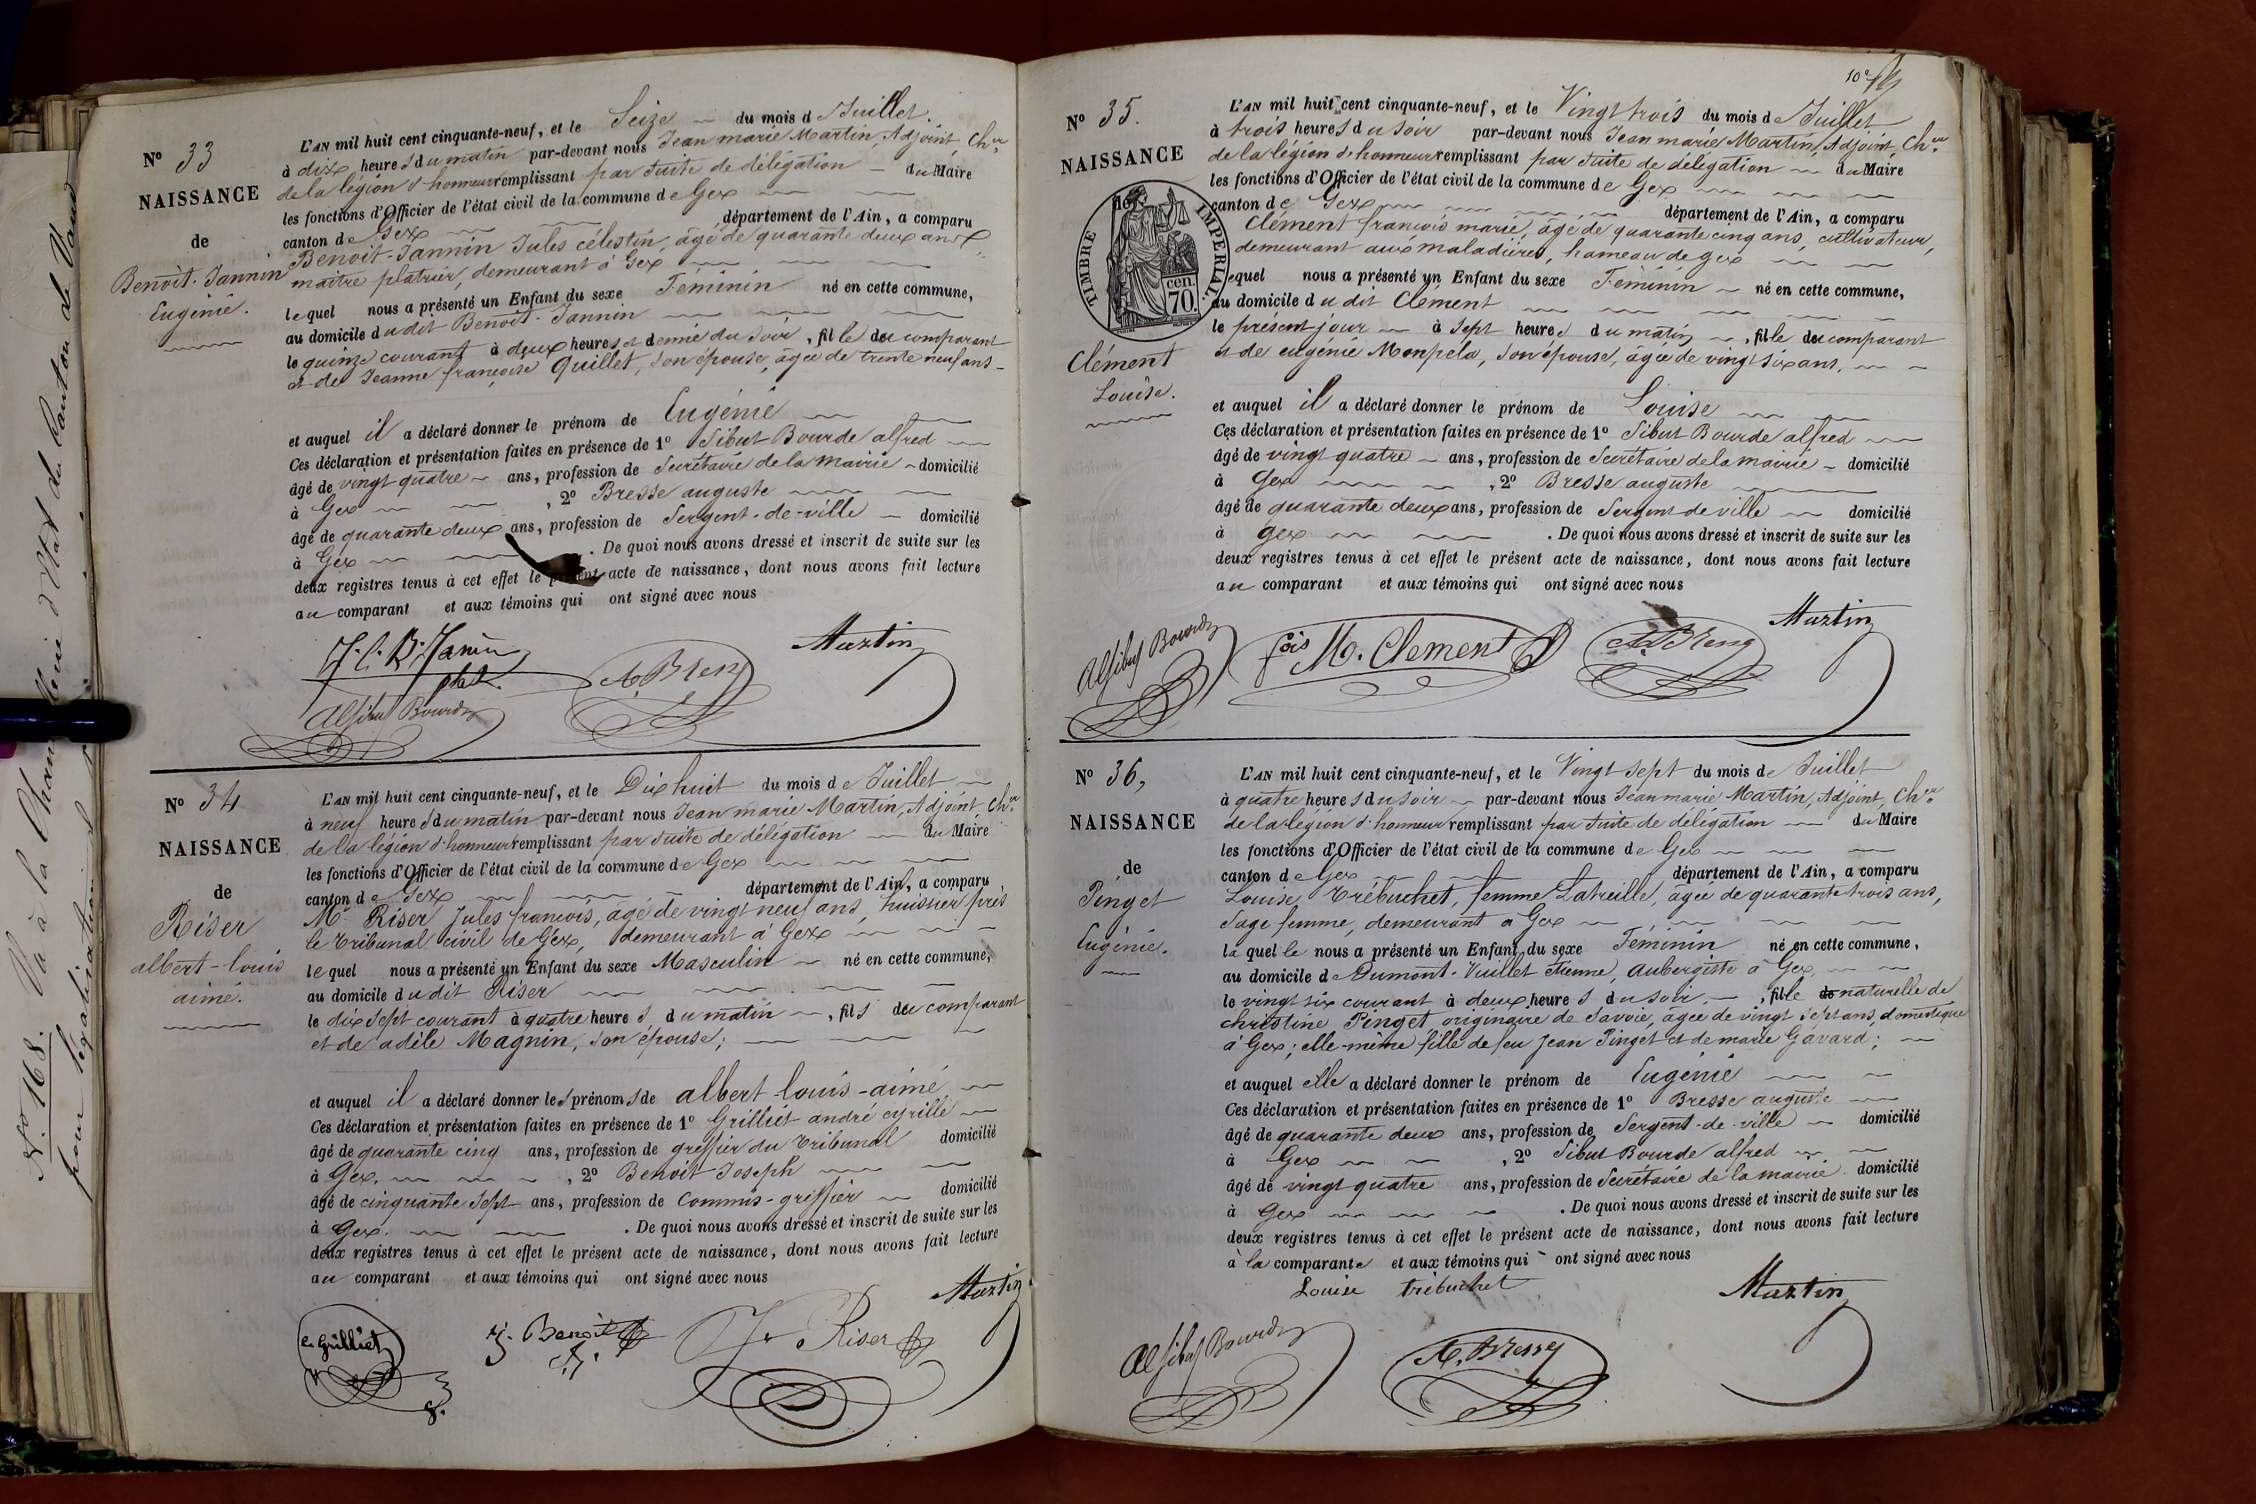 N° 33
NAISSANCE
de
Benoit-Jannin
Eugénie.
L'AN mil huit cent cinquante-neuf, et le Seize du mois de Juillet.
à dix heures du matin par-devant nous Jean marie Martin, Adjoint, Cher
de la légion d'honneur remplissant par suite de délégation du Maire
les fonctions d'Officier de l'état civil de la commune de Gex
canton de Gex département de l'Ain, a comparu
Benoit-Jannin Jules célestin, âgé de quarante deux ans
maître platrier, demeurant à Gex
lequel nous a présenté un Enfant du sexe Féminin né en cette commune,
au domicile du dit Benoit-Jannin
le quinze courant à deux heures et demie du soir, fille du comparant
et de Jeanne françoise Quillet, son épouse, âgée de trente neuf ans
et auquel il a déclaré donner le prénom de Eugénie
Ces déclaration et présentation faites en présence de 1° Sibut Bourde alfred
âgé de vingt quatre ans, profession de Secrétaire de la mairie domicilié
à Gex , 2° Bresse auguste
âgé de quarante deux ans, profession de Sergent-de-ville domicilié
à Gex . De quoi nous avons dressé et inscrit de suite sur les
deux registres tenus à cet effet le présent acte de naissance, dont nous avons fait lecture
au comparant et aux témoins qui ont signé avec nous
J. C. B. Janin
A. Bresse
Martin
A Sibut Bourde
N° 34
NAISSANCE
de
Riser
albert-louis
aimé.
L'AN mil huit cent cinquante-neuf, et le Dix huit du mois de Juillet
à neuf heures du matin par-devant nous Jean marie Martin, Adjoint, Cher
de la légion d'honneur remplissant par suite de délégation du Maire
les fonctions d'Officier de l'état civil de la commune de Gex
canton de Gex département de l'Ain, a comparu
Me Riser Jules françois, âgé de vingt neuf ans, huissier près
le tribunal civil de Gex, demeurant à Gex
lequel nous a présenté un Enfant du sexe Masculin né en cette commune,
au domicile du dit Riser
le dix sept courant à quatre heures du matin, fils du comparant
et de adèle Magnin, son épouse;
et auquel il a déclaré donner les prénoms de albert-louis-aimé
Ces déclaration et présentation faites en présence de 1° Grilliet andré cyrille
âgé de quarante cinq ans, profession de greffier du tribunal domicilié
à Gex. , 2° Benoit Joseph
âgé de cinquante sept ans, profession de Commis-greffier domicilié
à Gex. . De quoi nous avons dressé et inscrit de suite sur les
deux registres tenus à cet effet le présent acte de naissance, dont nous avons fait lecture
au comparant et aux témoins qui ont signé avec nous
Martin
c. Grilliet
J. Benoit
Riser
N° 168. Vu à la Chancellerie d'Etat du Canton de Vaud
pour légalisation
10e
N° 35.
NAISSANCE
TIMBRE IMPERIAL.
70 cen.
Clément
Louise.
L'AN mil huit cent cinquante-neuf, et le Vingt trois du mois de Juillet
à trois heures du soir par-devant nous Jean marie Martin, Adjoint, Cher
de la légion d'honneur remplissant par suite de délégation du Maire
les fonctions d'Officier de l'état civil de la commune de Gex
canton de Gex département de l'Ain, a comparu
Clément françois marie, âgé de quarante cinq ans, cultivateur,
demeurant aux maladières, hameau de gex
lequel nous a présenté un Enfant du sexe Féminin né en cette commune,
au domicile du dit Clément
le présent jour à sept heures du matin, fille du comparant
et de eugénie Monpela, son épouse, âgée de vingt six ans.
et auquel il a déclaré donner le prénom de Louise
Ces déclaration et présentation faites en présence de 1° Sibut Bourde alfred
âgé de vingt quatre ans, profession de Secrétaire de la mairie domicilié
à Gex , 2° Bresse auguste
âgé de quarante deux ans, profession de Sergent de ville domicilié
à gex . De quoi nous avons dressé et inscrit de suite sur les
deux registres tenus à cet effet le présent acte de naissance, dont nous avons fait lecture
au comparant et aux témoins qui ont signé avec nous
A Sibut Bourde
fois M. Clement
A. Bresse
Martin
N° 36,
NAISSANCE
de
Pinget
Eugénie.
L'AN mil huit cent cinquante-neuf, et le Vingt sept du mois de Juillet
à quatre heures du soir par-devant nous Jean marie Martin, Adjoint, Cher
de la légion d'honneur remplissant par suite de délégation du Maire
les fonctions d'Officier de l'état civil de la commune de Gex
canton de Gex département de l'Ain, a comparu
Louise Trébuchet, femme Latreille, âgée de quarante trois ans,
Sage femme, demeurant à Gex
laquelle nous a présenté un Enfant du sexe Féminin né en cette commune,
au domicile de Dumont-Vuillet étienne, aubergiste à Gex,
le vingt six courant à deux heures du soir, fille de naturelle de
christine Pinget originaire de Savoie, âgée de vingt sept ans, domestique
à Gex; elle-même fille de feu Jean Pinget et de marie Gavard;
et auquel elle a déclaré donner le prénom de Eugénie
Ces déclaration et présentation faites en présence de 1° Bresse auguste
âgé de quarante deux ans, profession de Sergent-de-ville domicilié
à Gex , 2° Sibut Bourde alfred
âgé de vingt quatre ans, profession de Secrétaire de la mairie domicilié
à Gex . De quoi nous avons dressé et inscrit de suite sur les
deux registres tenus à cet effet le présent acte de naissance, dont nous avons fait lecture
à la comparante et aux témoins qui ont signé avec nous
Louise trébuchet
Martin
A Sibut Bourde
A. Bresse